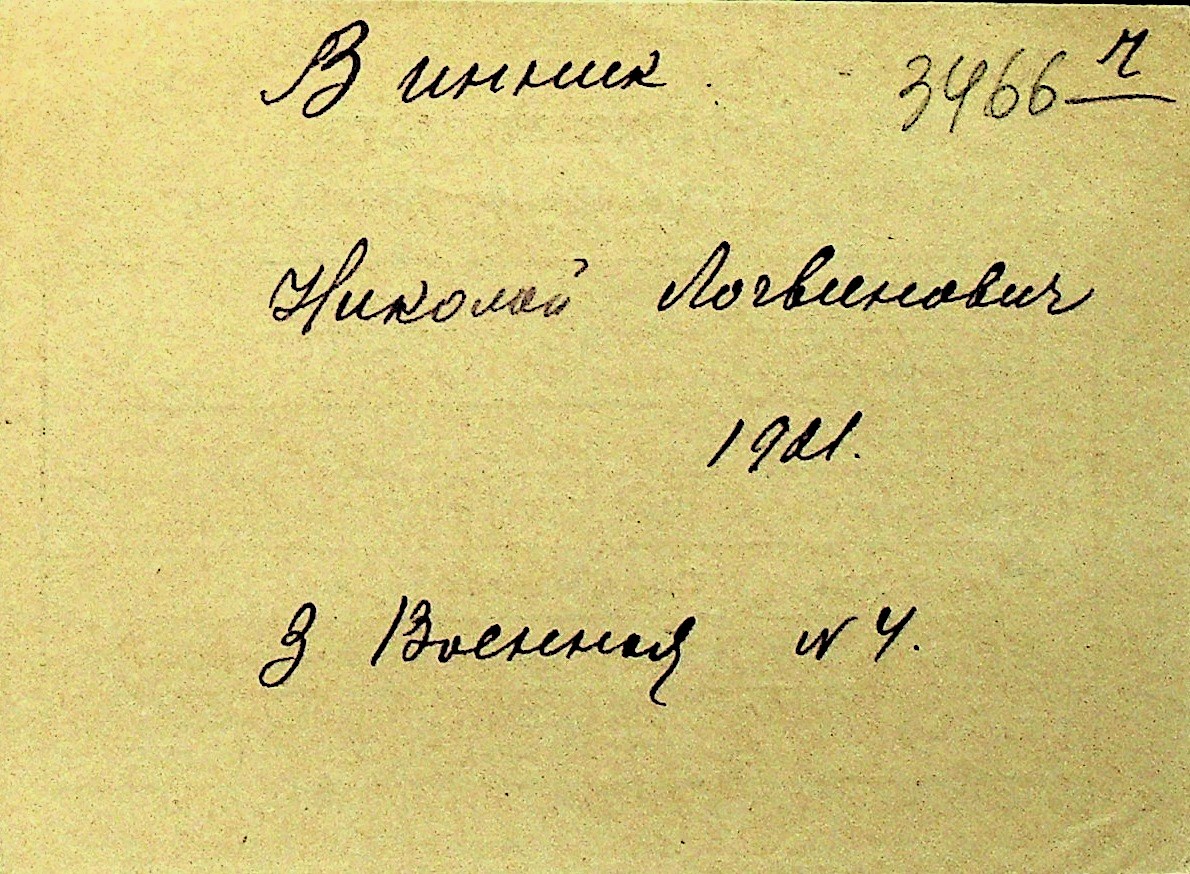 Винник. 3466 ч
Николай Логвинович
1921.
3 Военная № 4.